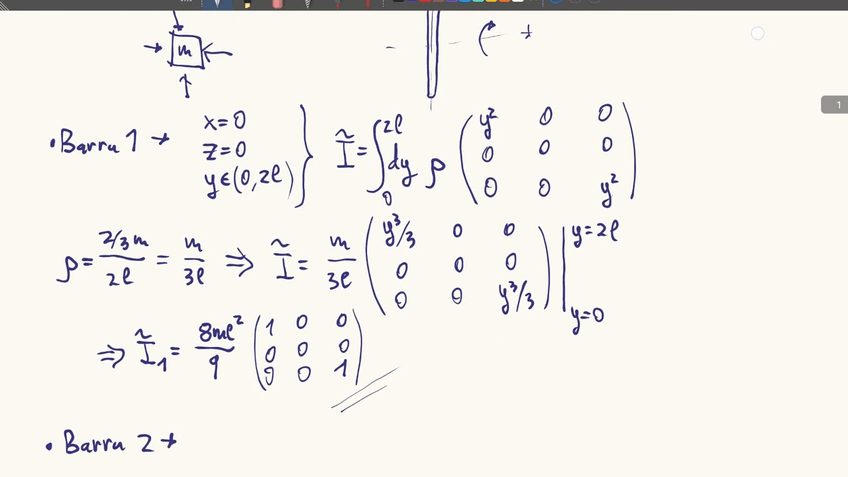 m
- - +
• Barra 1 → x=0
z=0
y∈(0,2ℓ) } Ĩ = ∫₀^{2ℓ} dy ρ ( y² 0 0
0 0 0
0 0 y² )
ρ = (2/3 m)/(2ℓ) = m/(3ℓ) ⇒ Ĩ = m/(3ℓ) ( y³/3 0 0
0 0 0
0 0 y³/3 ) | y=2ℓ
y=0
⇒ Ĩ₁ = 8mℓ²/9 ( 1 0 0
0 0 0
0 0 1 )
• Barra 2 →
1